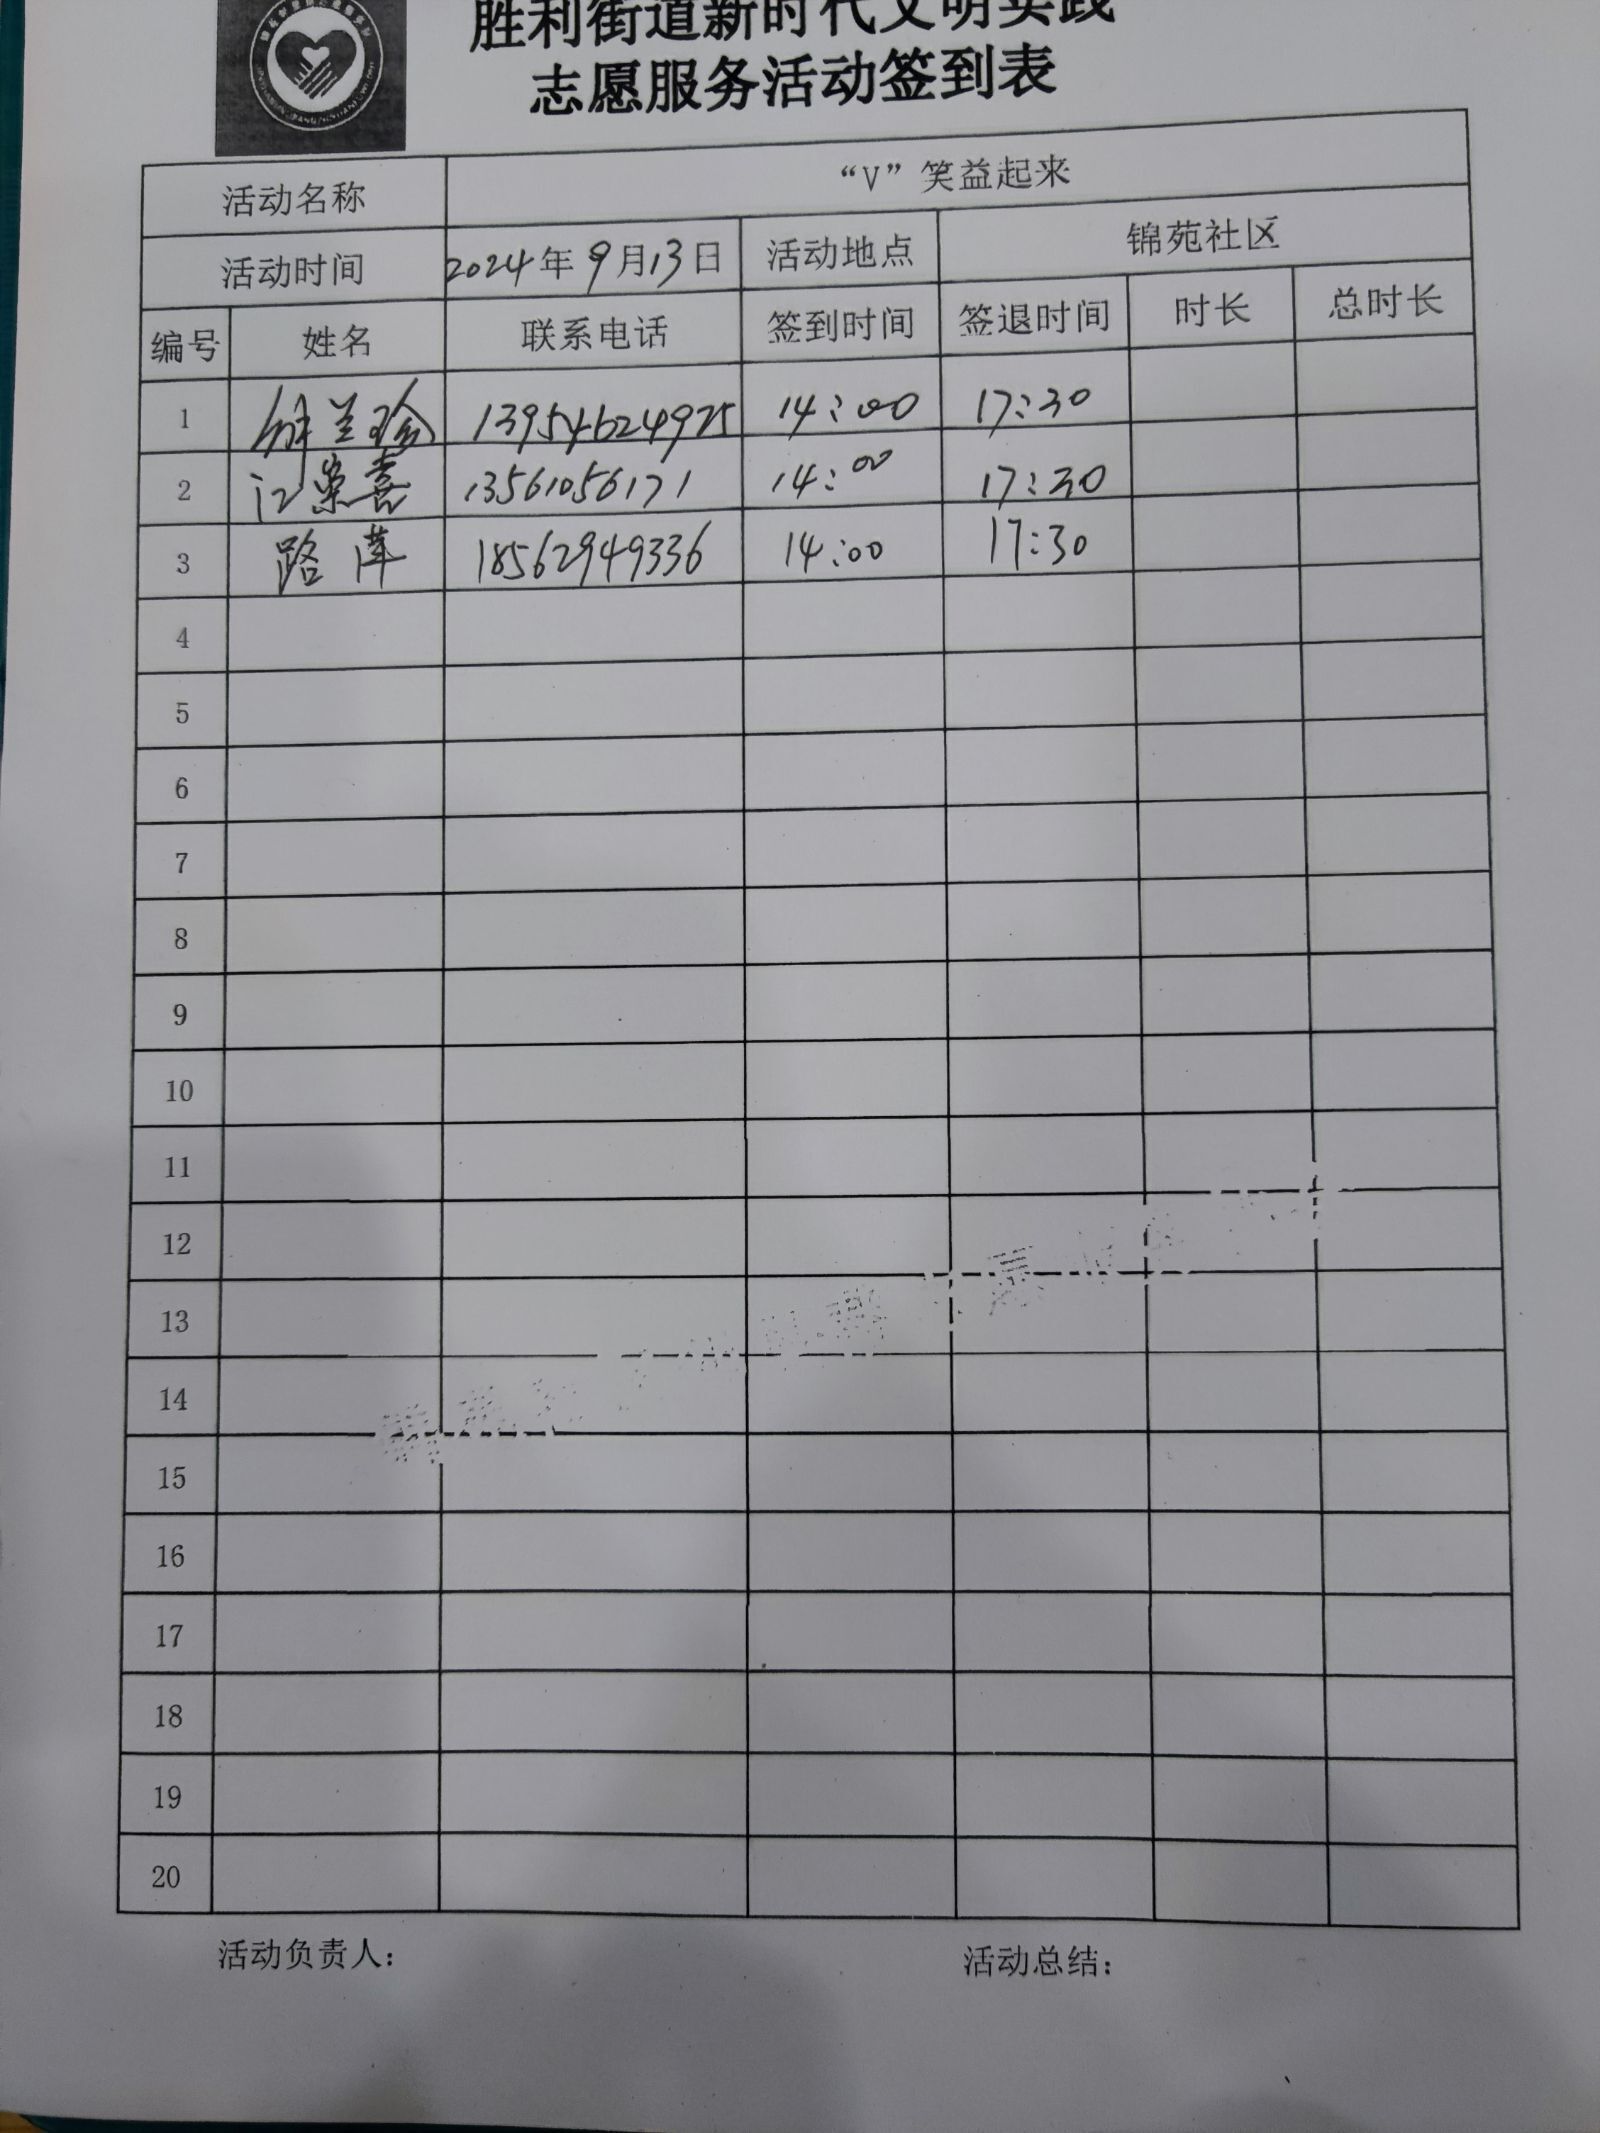 胜利街道新时代文明实践
志愿服务活动签到表
活动名称 “V”笑益起来
活动时间 2024年9月13日 活动地点 锦苑社区
编号 姓名 联系电话 签到时间 签退时间 时长 总时长
1 兰珍 13954624975 14:00 17:30
2 江荣喜 13561056171 14:00 17:30
3 路萍 18562949336 14:00 17:30
4
5
6
7
8
9
10
11
12
13
14
15
16
17
18
19
20
活动负责人: 活动总结: